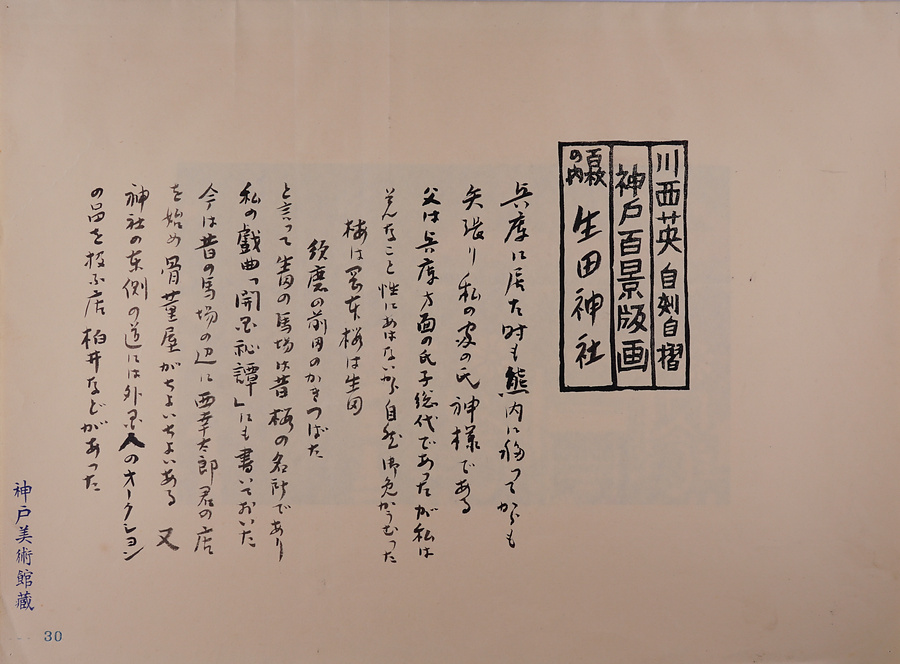 川西英 自刻自摺
神戸百景版画
百枚の内 生田神社
兵庫に居た時も熊内に移ってからも
矢張り私の家の氏神様である
父は兵庫方面の氏子総代であったが私は
そんなこと性にあはないから自然御免かうむった
梅は岡本桜は生田
須磨の前田のかきつばた
と言って生田の馬場は昔桜の名所であり
私の戯曲「開国秘譚」にも書いておいた
今は昔の馬場の辺に西幸太郎君の店
を始め骨董屋がちよいちよいある 又
神社の東側の道には外国人のオークション
の品を扱ふ店柏井などがあった
神戸美術館蔵
30